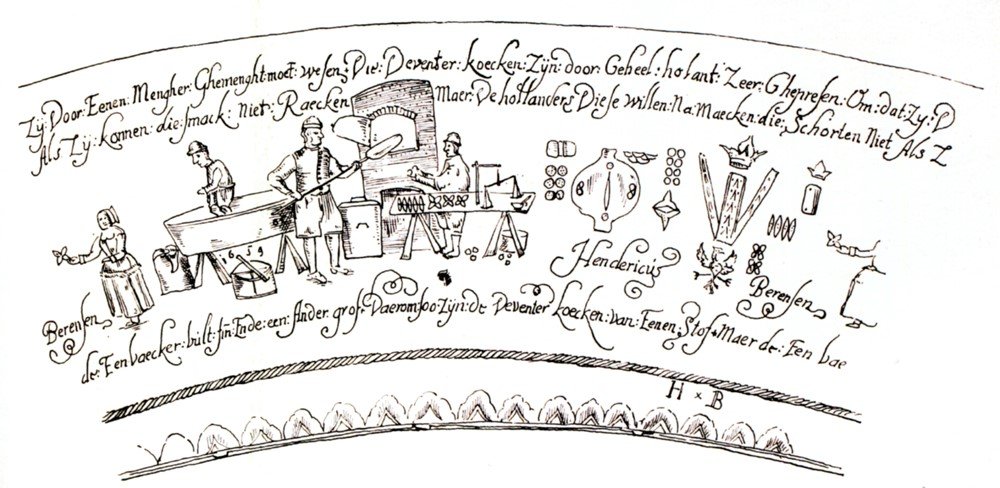 Zÿ: Door: Eenen: Mengher: Ghemenght: moet: wesen: Die: Deventer: koecken: Zÿn: door: Geheel: holant: Zeer: Ghepresen: Om: dat: Zy: D
Als Zÿ: konnen: die: smack: Niet: Raecken Maer: De hollanders Diese willen: Na: Maecken: die: Schorten Niet Als Z
1659
Hendericus
Berensen
Berensen
de: Een backer: bult: fin Ende: een: Ander grof Daerom soo: Zÿn: de Deventer koecken: van: Eenen Stof Maer de: Een bae
H × B